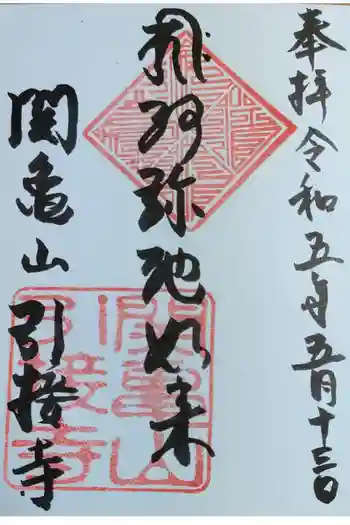 奉拝 令和五年五月十三日
南無阿弥陀如来
関亀山 引接寺
関亀山
引接寺